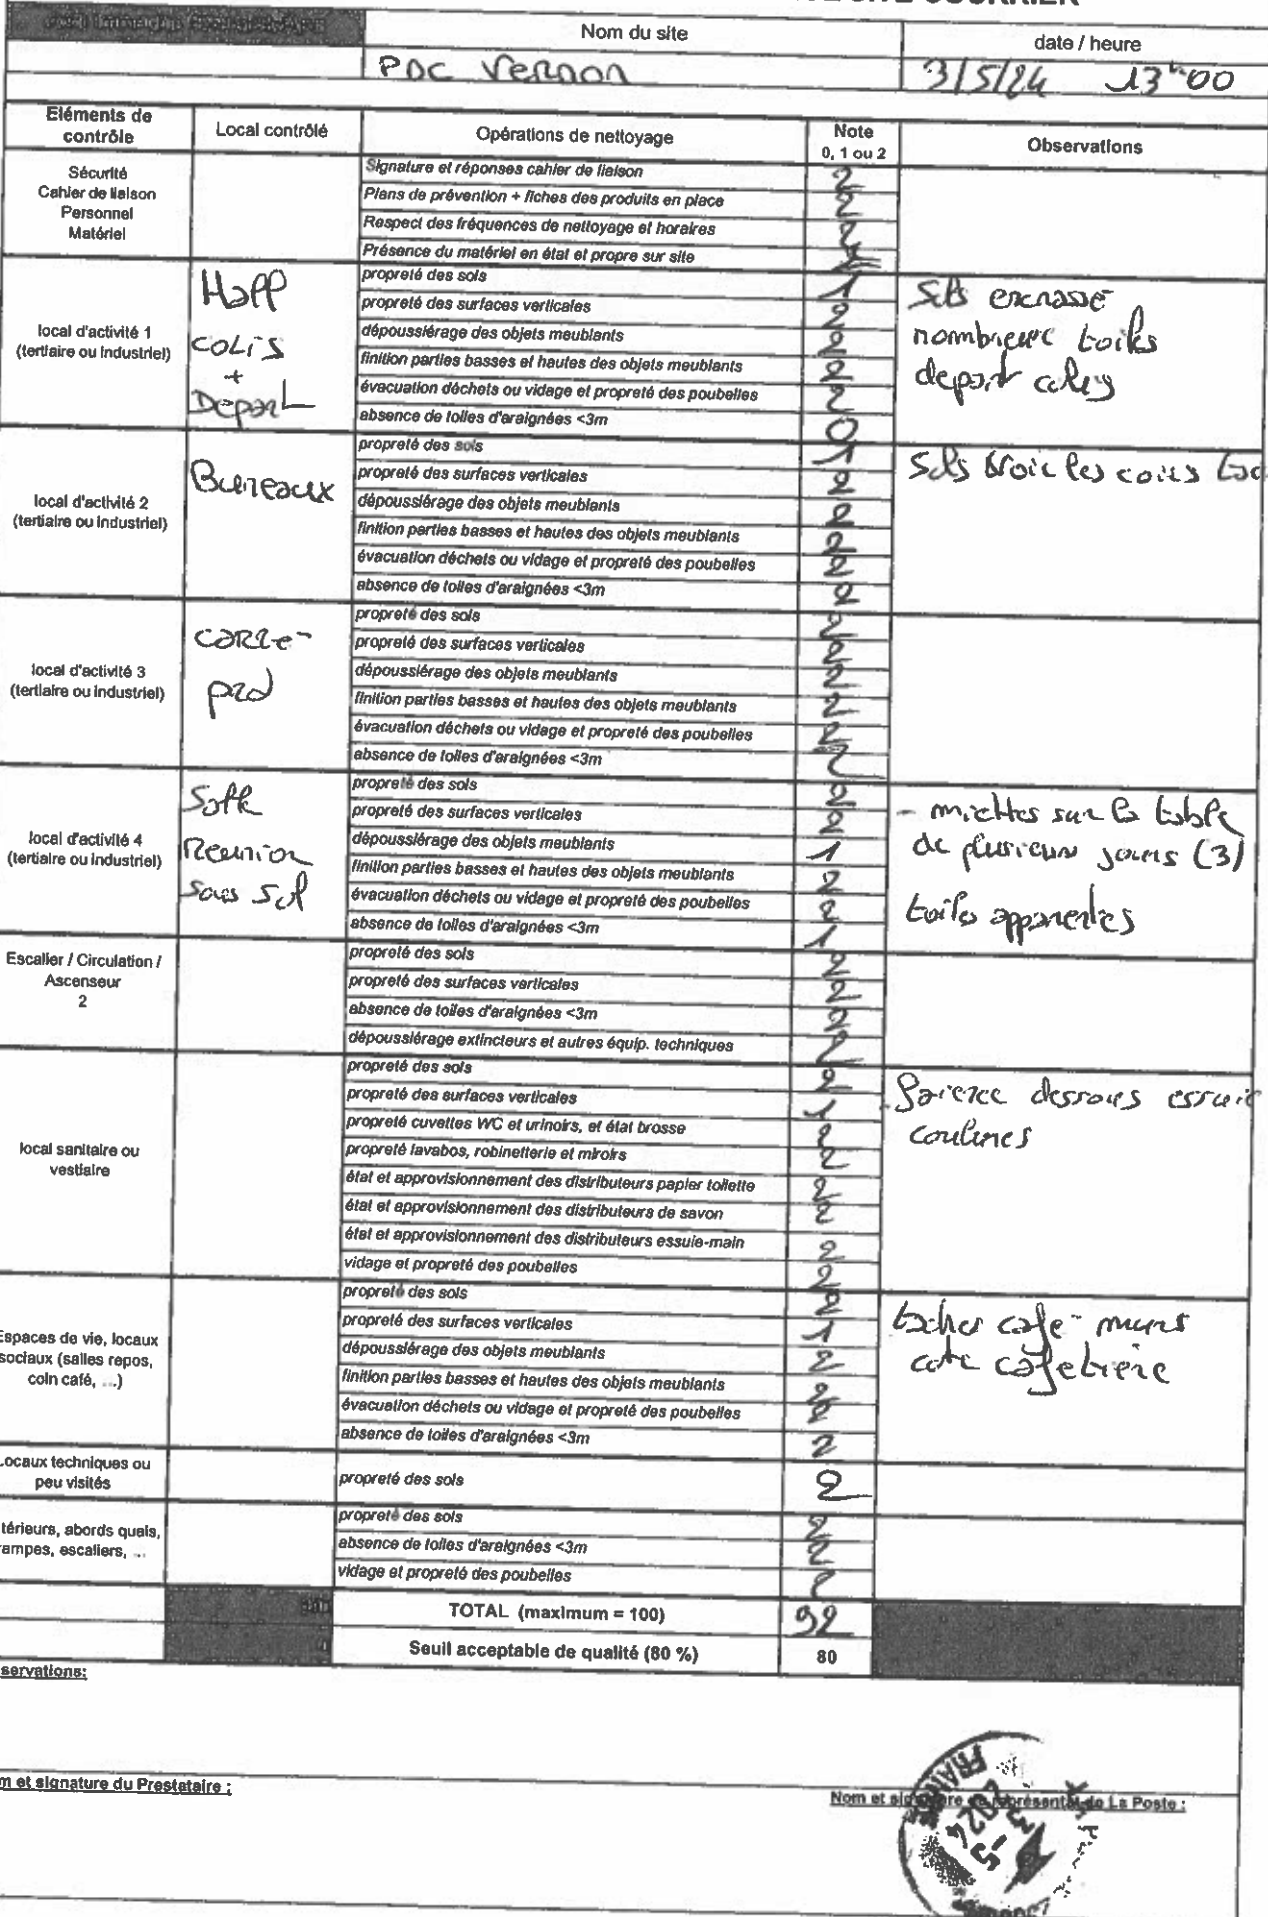 Nom du site date / heure
PDC Vernon 3/5/24 13h00
Eléments de contrôle Local contrôlé Opérations de nettoyage Note 0, 1 ou 2 Observations
Sécurité
Cahier de liaison
Personnel
Matériel
Signature et réponses cahier de liaison 2
Plans de prévention + fiches des produits en place 2
Respect des fréquences de nettoyage et horaires 2
Présence du matériel en état et propre sur site 2
local d'activité 1
(tertiaire ou industriel)
Hall
COLIS
+
Depart
propreté des sols 1
propreté des surfaces verticales 2
dépoussiérage des objets meublants 2
finition parties basses et hautes des objets meublants 2
évacuation déchets ou vidage et propreté des poubelles 2
absence de toiles d'araignées <3m 0
Sols encrassé
nombreuse toiles
depart colis
local d'activité 2
(tertiaire ou industriel)
Bureaux
propreté des sols 1
propreté des surfaces verticales 2
dépoussiérage des objets meublants 2
finition parties basses et hautes des objets meublants 2
évacuation déchets ou vidage et propreté des poubelles 2
absence de toiles d'araignées <3m 2
Sols les coins
local d'activité 3
(tertiaire ou industriel)
carre
pro
propreté des sols 2
propreté des surfaces verticales 2
dépoussiérage des objets meublants 2
finition parties basses et hautes des objets meublants 2
évacuation déchets ou vidage et propreté des poubelles 2
absence de toiles d'araignées <3m 2
local d'activité 4
(tertiaire ou industriel)
Salle
Reunion
sous sol
propreté des sols 2
propreté des surfaces verticales 2
dépoussiérage des objets meublants 1
finition parties basses et hautes des objets meublants 2
évacuation déchets ou vidage et propreté des poubelles 2
absence de toiles d'araignées <3m 1
- miettes sur la table
de plusieurs jours (3)
toiles apparentes
Escalier / Circulation /
Ascenseur
2
propreté des sols 2
propreté des surfaces verticales 2
absence de toiles d'araignées <3m 2
dépoussiérage extincteurs et autres équip. techniques 2
local sanitaire ou
vestiaire
propreté des sols 2
propreté des surfaces verticales 1
propreté cuvettes WC et urinoirs, et état brosse 2
propreté lavabos, robinetterie et miroirs 2
état et approvisionnement des distributeurs papier toilette 2
état et approvisionnement des distributeurs de savon 2
état et approvisionnement des distributeurs essuie-main 2
vidage et propreté des poubelles 2
dessous essuie
coulures
Espaces de vie, locaux
sociaux (salles repos,
coin café, ...)
propreté des sols 2
propreté des surfaces verticales 1
dépoussiérage des objets meublants 2
finition parties basses et hautes des objets meublants 2
évacuation déchets ou vidage et propreté des poubelles 2
absence de toiles d'araignées <3m 2
taches café murs
cote cafetiere
Locaux techniques ou
peu visités
propreté des sols 2
térieurs, abords quais,
rampes, escaliers, ...
propreté des sols 2
absence de toiles d'araignées <3m 2
vidage et propreté des poubelles 2
TOTAL (maximum = 100) 92
Seuil acceptable de qualité (80 %) 80
servations:
m et signature du Prestataire :
Nom et signature représentant de La Poste :
FRANCE
3 -5
2024